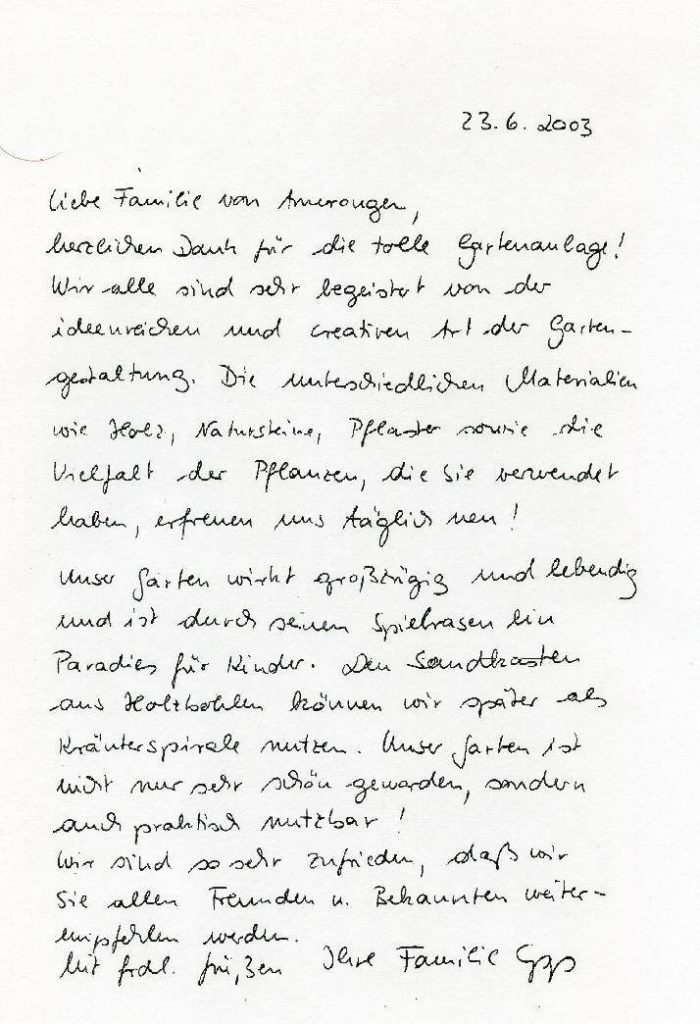 23.6.2003
Liebe Familie von Amerongen,
herzlichen Dank für die tolle Gartenanlage!
Wir alle sind sehr begeistert von der
ideenreichen und creativen Art der Garten-
gestaltung. Die unterschiedlichen Materialien
wie Holz, Natursteine, Pflaster sowie die
Vielfalt der Pflanzen, die Sie verwendet
haben, erfreuen uns täglich neu!
Unser Garten wirkt großzügig und lebendig
und ist durch seinen Spielrasen ein
Paradies für Kinder. Den Sandkasten
aus Holzbohlen können wir später als
Kräuterspirale nutzen. Unser Garten ist
nicht nur sehr schön geworden, sondern
auch praktisch nutzbar!
Wir sind so sehr zufrieden, daß wir
Sie allen Freunden u. Bekannten weiter-
empfehlen werden.
Mit frdl. Grüßen Ihre Familie